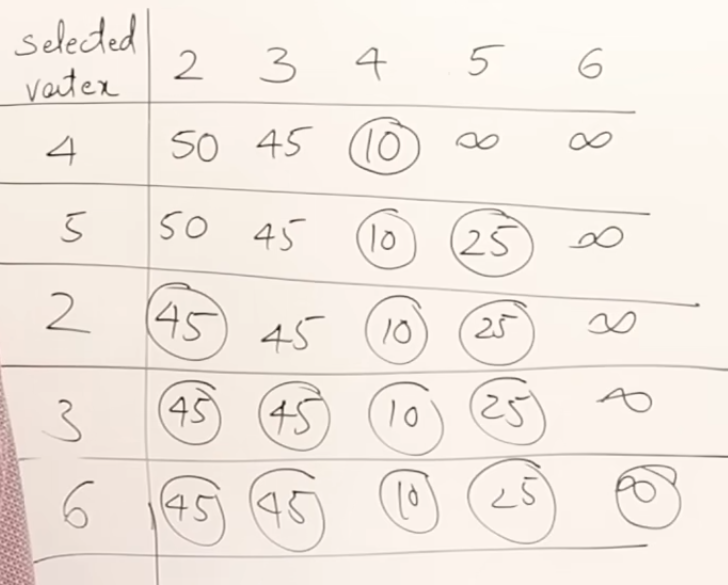 selected
vertex 2 3 4 5 6
4 50 45 10 ∞ ∞
5 50 45 10 25 ∞
2 45 45 10 25 ∞
3 45 45 10 25 ∞
6 45 45 10 25 ∞